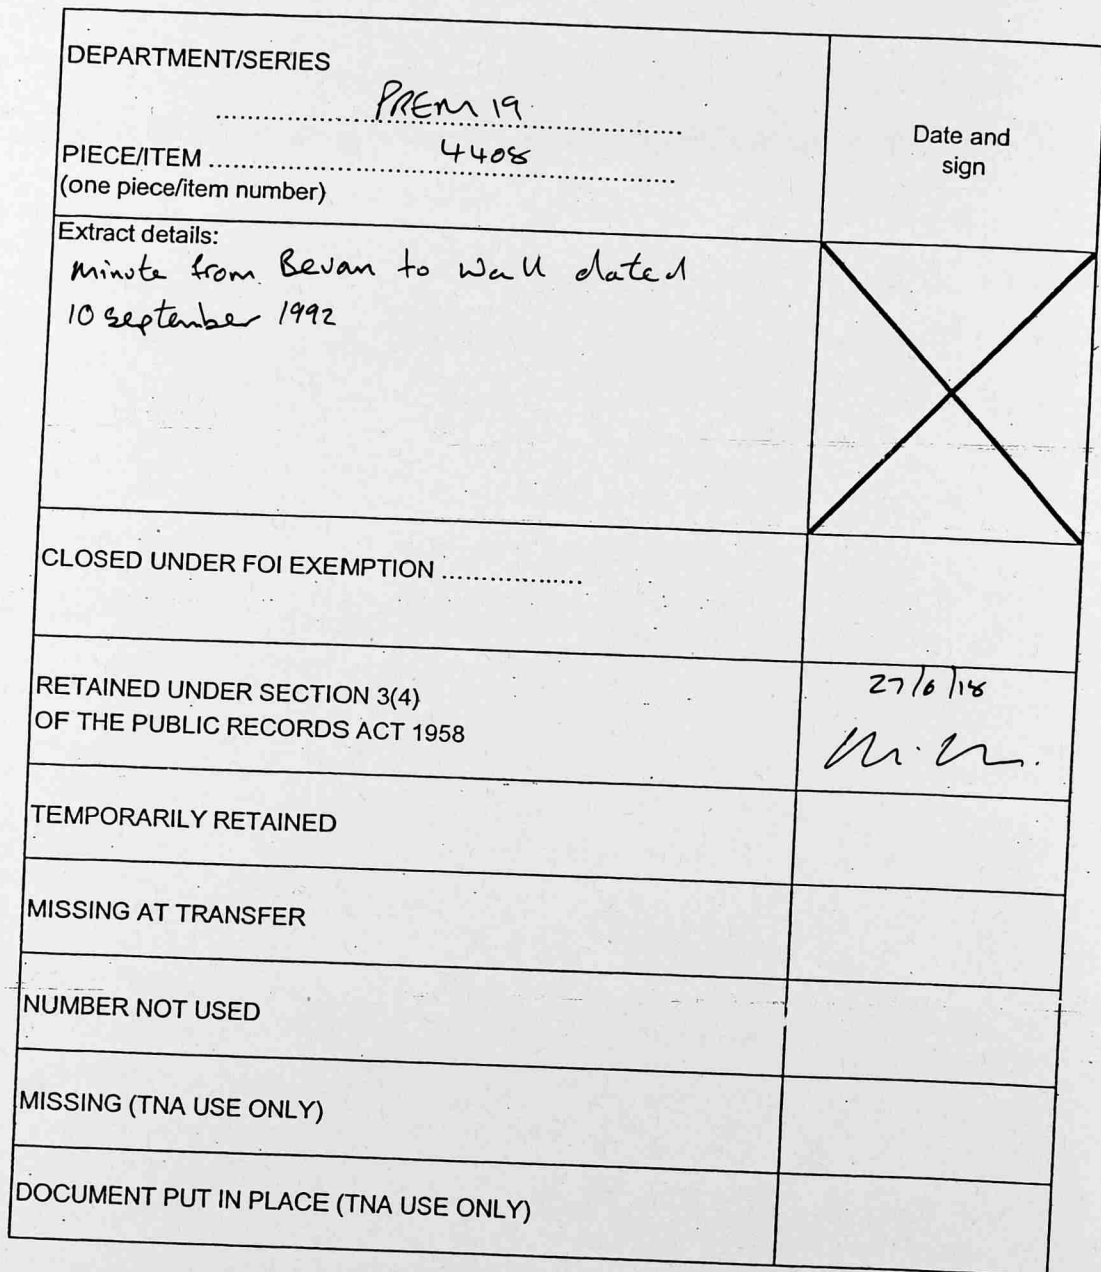 DEPARTMENT/SERIES
PREM 19
PIECE/ITEM 4408
(one piece/item number)
Date and
sign
Extract details:
Minute from Bevan to Wall dated
10 September 1992
CLOSED UNDER FOI EXEMPTION ..................
RETAINED UNDER SECTION 3(4)
OF THE PUBLIC RECORDS ACT 1958
27/6/18
TEMPORARILY RETAINED
MISSING AT TRANSFER
NUMBER NOT USED
MISSING (TNA USE ONLY)
DOCUMENT PUT IN PLACE (TNA USE ONLY)